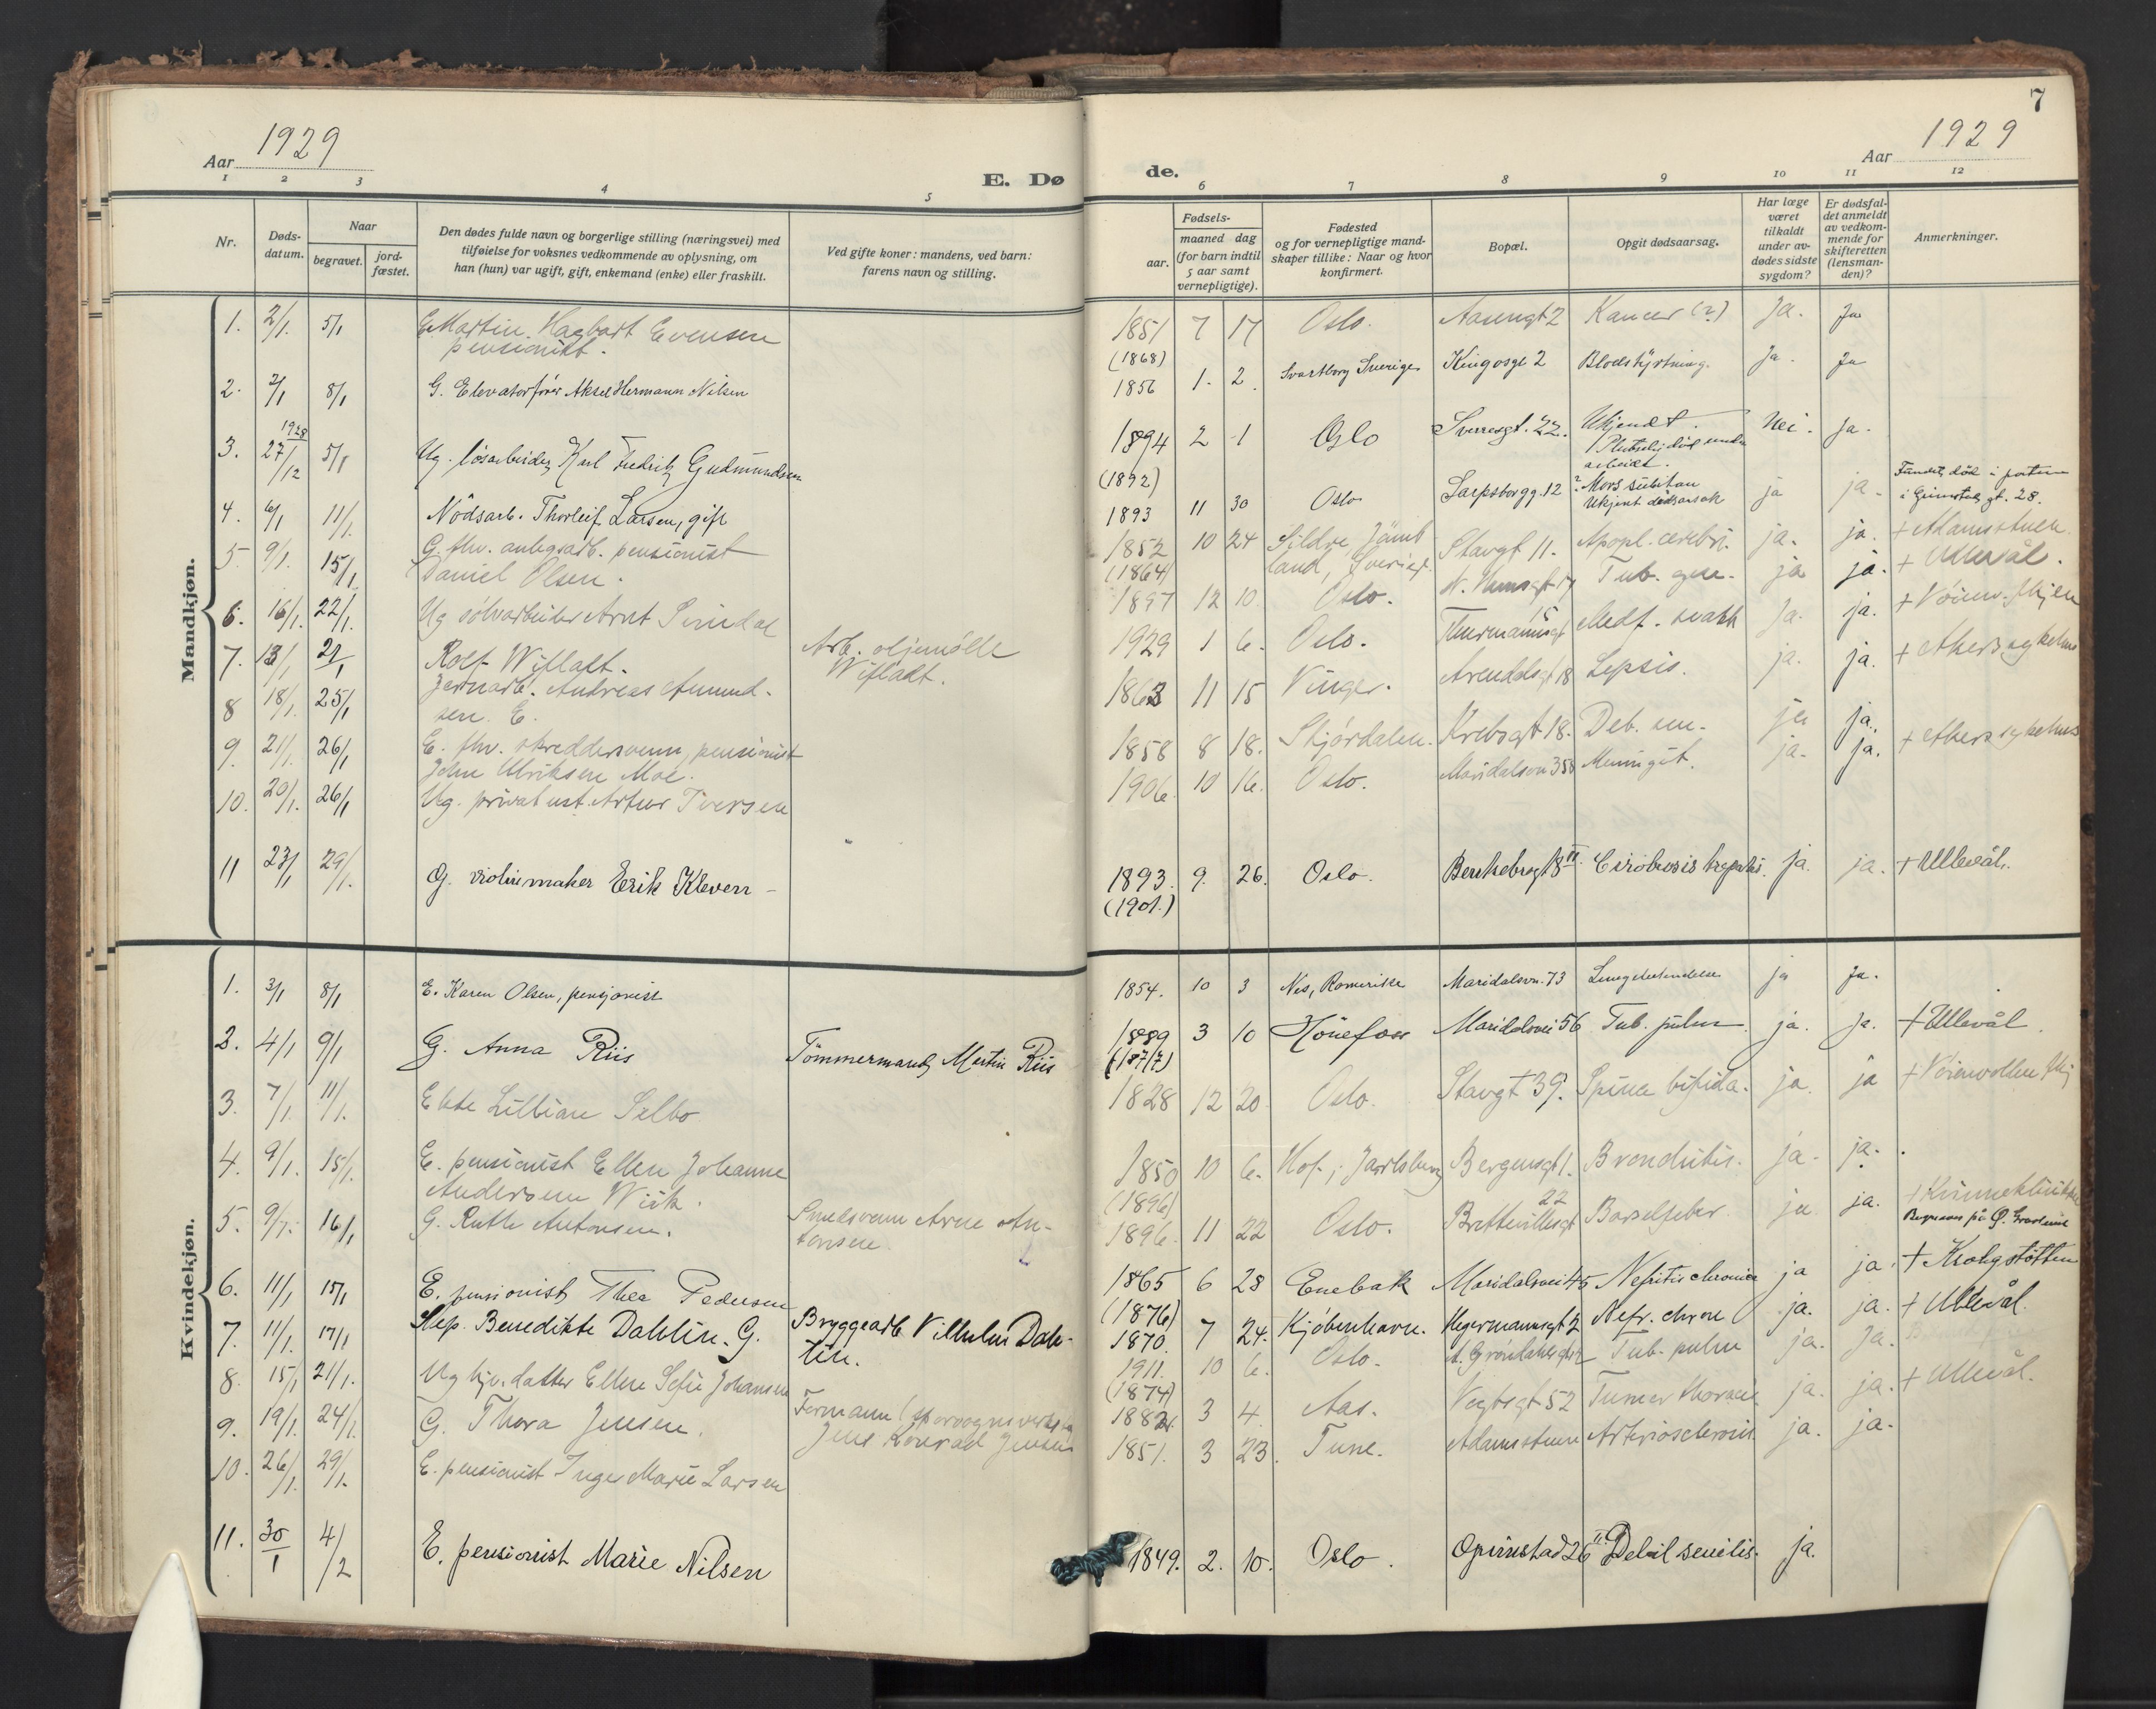 7
Aar 1929
E. Dø
de.
Aar 1929
1 2 3 4 5 6 7 8 9 10 11 12
Nr.
Døds-datum.
Naar
begravet.
jord-fæstet.
Den dødes fulde navn og borgerlige stilling (næringsvei) med
tilføielse for voksnes vedkommende av oplysning, om
han (hun) var ugift, gift, enkemand (enke) eller fraskilt.
Ved gifte koner: mandens, ved barn:
farens navn og stilling.
Fødsels-
aar.
maaned dag
(for barn indtil
5 aar samt
vernepligtige).
Fødested
og for vernepligtige mand-
skaper tillike: Naar og hvor
konfirmert.
Bopæl.
Opgit dødsaarsag.
Har læge
været
tilkaldt
under av-
dødes sidste
sygdom?
Er dødsfal-
det anmeldt
av vedkom-
mende for
skifteretten
(lensman-
den)?
Anmerkninger.
Mandkjøn.
1. 2/1. 5/1 E. Martin Hagbart Evensen 1851 7 17 Oslo. Aasengt 2 Kancer (?) Ja. Ja
pensionist. (1868)
2. 2/1 8/1 G. Elevatorfører Aksel Hermann Nilsen 1856 1. 2. Svartborg Sverige Kingosgt 2 Blodstyrtning. Ja. Ja
3. 1928 27/12 5/1 Ug. løsarbeider Karl Fredrik Gudmundsen 1894 2 1 Oslo Sverresgt. 22. Ukjendt. Nei. Ja.
Plutselig død under
arbeidet.
(1892)
4. 6/1 11/1. Nødsarb. Thorleif Larsen, gift 1893 11 30 Oslo Sarpsborgg. 12 ? Mors subitan ja ja. Fundet død i porten
Ukjent dødsårsak i Grimstadgt. 28.
5. 9/1. 15/1 G. fhv. anlegsarb. pensionist 1852 10 24 Sildre Jämt Stavgt 11. Apopl. cerebri. ja. ja. + Adamstuen
Daniel Olsen. (1864) land, Sverige.
6. 16/1. 22/1. Ug sølvarbeider Arnt Sindal 1897 12 10 Oslo. 17 Tub. ja ja. + Ullevål.
7. 13/1 21/1 Rolf Wifladt. Arb. oljemølle Wifladt. 1929 1 6. Oslo. Thurmannsgt Medf. svakh Ja. ja.
8 18/1. 25/1 Jernarb. Andreas Amund- 1863 11 15 Vinger. Arendalsgt 18 Sepsis. ja. ja. + Akers sykehus
sen. E.
9. 21/1. 26/1 E. fhv. skreddersvenn, pensionist 1858 8 18. Stjørdalen. Krebsgt 18. Deb. sen. ja ja.
John Ulriksen Moe.
10. 20/1. 26/1 Ug. privat ust. Artur Iversen 1906. 10 16. Oslo. Maridalsvn 358 Meningit. ja. ja. + Akers sykehus
11 23/1 29/1. G. violinmaker Erik Kleven 1893. 9. 26. Oslo. Bentsebrogt 8 II. Cirohosis hepatis. ja. ja. + Ullevål.
(1901.)
Kvindekjøn.
1. 3/1 8/1 E. Karen Olsen, pensjonist 1854. 10 3 Nes, Romerike Maridalsvn. 73 Lungebetendelse ja Ja.
2. 4/1 9/1 G. Anna Riis Tømmermand Martin Riis 1889 3 10 Hønefoss Maridalsvei 56 Tub. pulm. ja. Ja. + Ullevål.
(1877)
3. 7/1. 11/1. Ekte Lillian Selbo 1828 12 20 Oslo. Stavgt 39. Spina bifida. ja. ja
4. 9/1. 15/1. E. pensionist Ellen Johanne 1850 10 6. Hof, Jarlsberg Bergensgt 1. Bronchitis. ja. ja.
Andersen Wiik. (1896)
5. 9/1. 16/1 G. Ruth Antonsen. Smedsvenn Arne An- 1896. 11 22 Oslo. Brettevillesgt 22 Barselfeber. ja ja. + Kvinneklinikken
tonsen. Begraves på Ø. Gravlund
6. 11/1 15/1 E. pensionist Thea Pedersen 1865 6 28 Enebak Maridalsvei 45 Nefritis chronica ja ja. + Krohgstøtten
(1876)
7. 11/1. 17/1 Hep. Benedikte Dahlin. G. Bryggearb. Vilhelm Dah- 1870. 7 24. Kjøbenhavn. Hegermannsgt 2 Nefr. chron ja. ja. + Ullevål.
lin.
8. 15/1 21/1. Ug hjv. datter Ellen Sofie Johansen 1911. 10 6. Oslo. A. Grøndahlsgt 2 Tub. pulm ja. Ja.
(1874)
9. 19/1. 24/1. G. Thora Jensen. Formann (sporvognsverksted) 1882. 3 4. Aas. Vogtsgt 52 Tumor thoracis ja. ja. + Ullevål.
Jens Konrad Jensen
10. 26/1. 29/1. E. pensionist Inger Marie Larsen 1851. 3 23. Tune. Adamstuen Arteriosclerosis. ja. ja.
11. 30/1 4/2 E. pensionist Marie Nilsen 1849. 2. 10. Oslo. 26 II Debil senilis. ja.